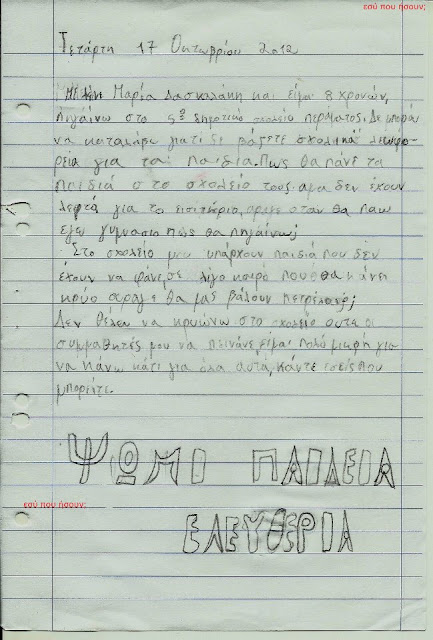 εσύ που ήσουν;
Τετάρτη 17 Οκτωβρίου 2012
Με λένε Μαρία Δασκαλάκη και είμαι 8 χρονών,
πιγαίνω στο 5ο δημοτικό σχολείο περάματος. Δε μπορώ
να καταλάβω γιατί δε βάζετε σχολικά λεωφο-
ρεία για τα παιδιά. Πως θα πάνε τα
παιδιά στο σχολείο τους αμα δεν έχουν
λεφτά για το εισιτήριο, αραγε οταν θα παω
εγω γυμνασιο πως θα πηγαίνω;
Στο σχολείο μου υπάρχουν παιδιά που δεν
έχουν να φάνε, σε λίγο καιρό που θα κάνει
κρυο αραγε θα μας βάλουν πετρέλαιο;
Δεν θέλω να κρυώνω στο σχολείο ουτε οι
συμμαθητές μου να πεινάνε, είμαι πολύ μικρή για
να κάνω κάτι για όλα αυτά, κάντε εσείς που
μπορείτε.
ΨΩΜΙ ΠΑΙΔΕΙΑ
εσύ που ήσουν;
ΕΛΕΥΘΕΡΙΑ